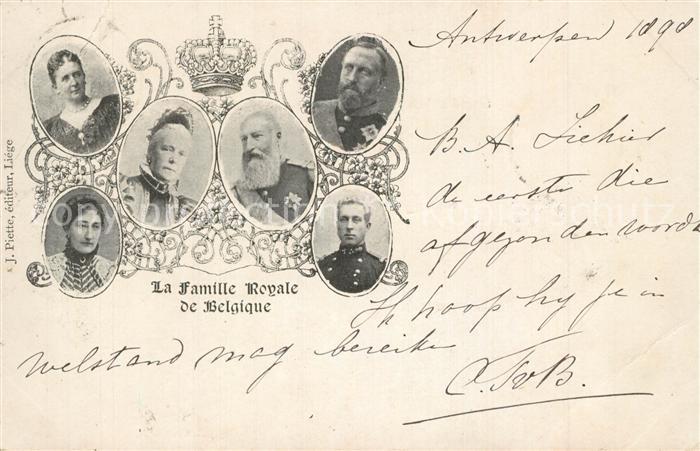 Antwerpen 1898
J. Piette, éditeur, Liége
La Famille Royale
de Belgique
B. A. Ziehier
de eerste die
afgezonden wordt
Ik hoop hy je in
welstand mag bereiken
kopierschutz